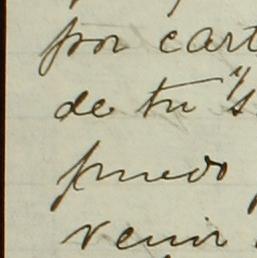 por cart
de tu
puedo
venir